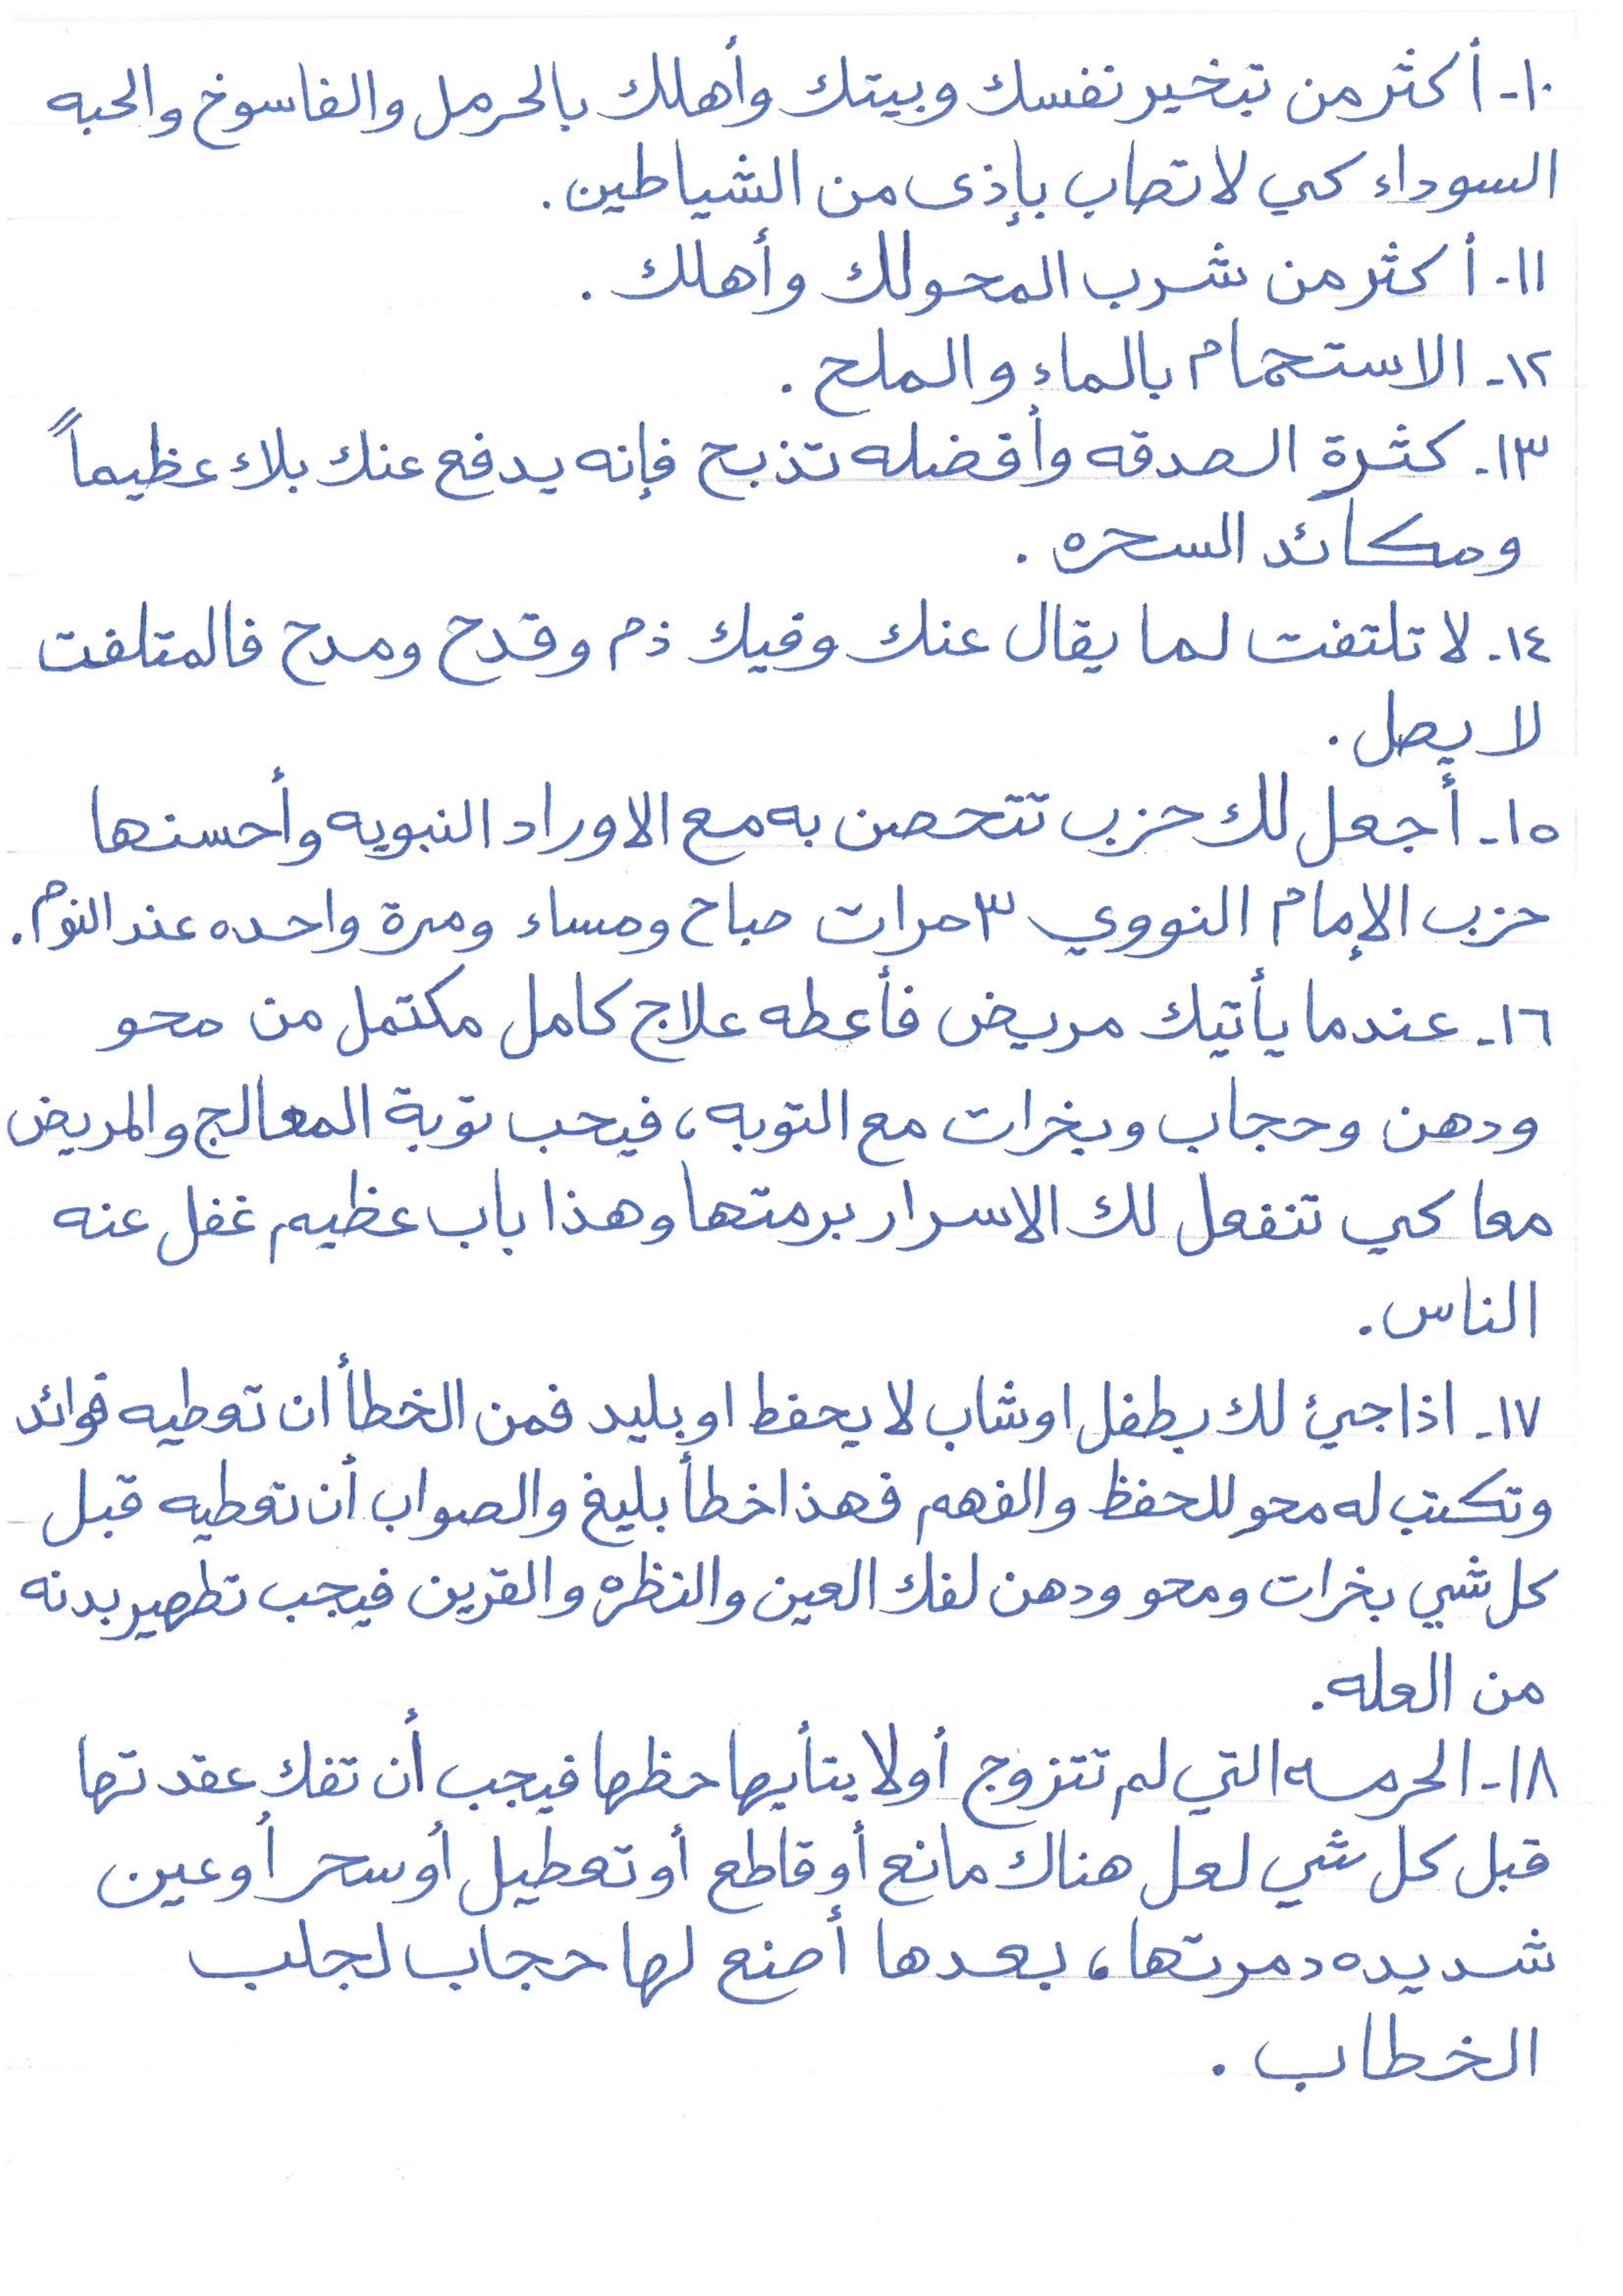 ١٠- أكثر من تبخير نفسك وبيتك وأهلك بالحرمل والفاسوخ والحبه
السوداء كي لا تصاب بإذى من الشياطين.
١١- أكثر من شرب المحو لك وأهلك .
١٢- الاستحمام بالماء والملح .
١٣- كثرة الصدقه وأفضله تذبح فإنه يدفع عنك بلاء عظيماً
ومكائد السحره .
١٤- لا تلتفت لما يقال عنك وفيك ذم وقدح ومدح فالمتلفت
لا يصل .
١٥- أجعل لك حزب تتحصن به مع الاوراد النبويه وأحسنها
حزب الإمام النووي ٣ مرات صباح ومساء ومرة واحده عند النوم.
١٦- عندما يأتيك مريض فأعطه علاج كامل مكتمل من محو
ودهن وحجاب وبخرات مع التوبه، فيحب توبة المعالج والمريض
معا كي تنفعل لك الاسرار برمتها وهذا باب عظيم غفل عنه
الناس.
١٧- اذا جئ لك بطفل او شاب لا يحفظ او بليد فمن الخطأ ان تعطيه فوائد
وتكتب له محو للحفظ والفهم فهذا خطأ بليغ والصواب أن تعطيه قبل
كل شي بخرات ومحو ودهن لفك العين والنظره والقرين فيجب تطهير بدنه
من العله.
١٨- الحرمه التي لم تتزوج أو لا يتأيها حظها فيجب أن تفك عقدتها
قبل كل شي لعل هناك مانع أو قاطع أو تعطيل أو سحر أو عين
شديده دمرتها، بعدها أصنع لها حجاب لجلب
الخطاب .